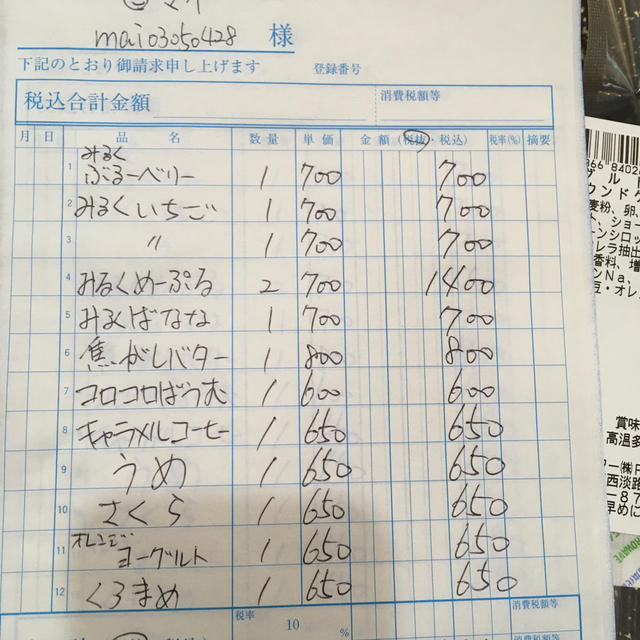 mai03050428 様
下記のとおり御請求申し上げます 登録番号
税込合計金額 消費税額等
月 日 品名 数量 単価 金額(税抜・税込) 税率(%) 摘要
1 みるくぶるーべりー 1 700 700
2 みるくいちご 1 700 700
3 〃 1 700 700
4 みるくめーぷる 2 700 1400
5 みるくばなな 1 700 700
6 焦がしバター 1 800 800
7 コロコロばうむ 1 600 600
8 キャラメルコーヒー 1 650 650
9 うめ 1 650 650
10 さくら 1 650 650
11 オレンジヨーグルト 1 650 650
12 くろまめ 1 650 650
税率 10 % 消費税額等
麦粉、卵、
ト、ショー
ンシロッ
レラ抽出
香料、増
ンNa、
豆・オレ
賞味
高温多
西淡路
早めに